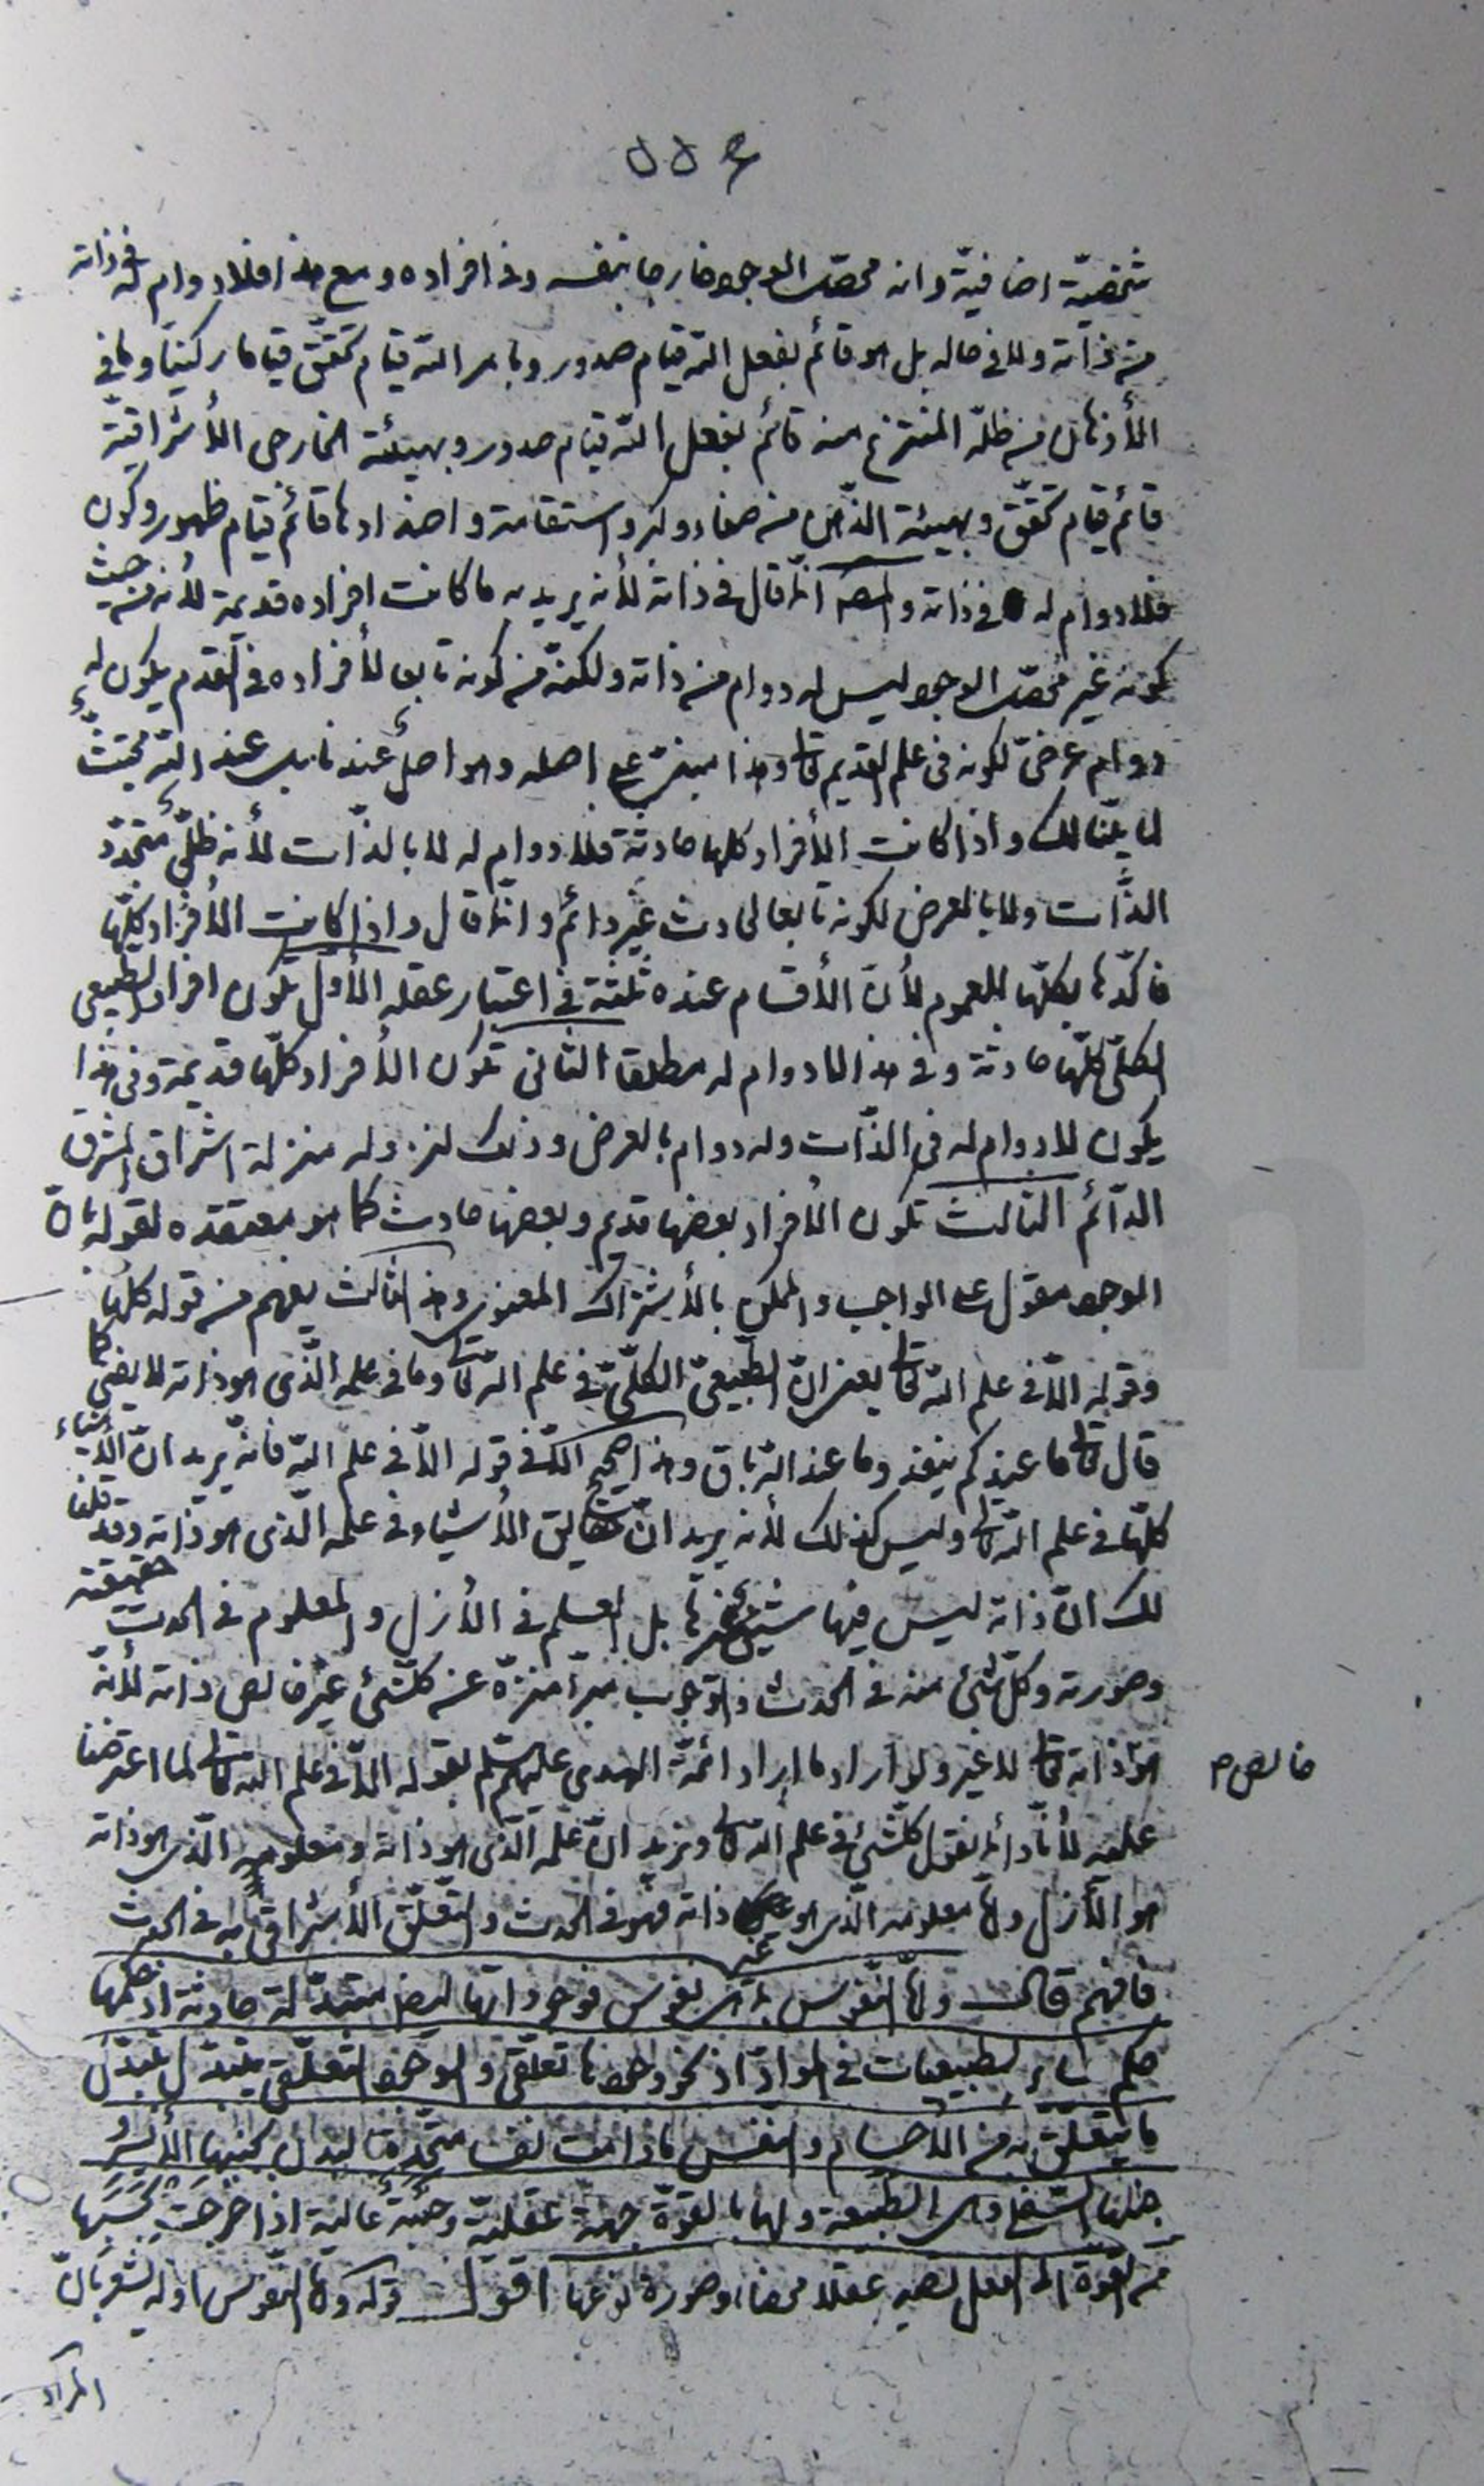 شخصيّة اضافيّة وانه محصّل الوجود خارجا بنفسه وفى افراده ومع هذا فلا دوام له فى ذاته
من ذاته ولا فى حاله بل هو قائم بفعل اللّه قيام صدور وبامر اللّه قيام تحقّق قياما ركنيّا وما فى
الأذهان من ظلّه المنتزع منه قائم بفعل اللّه قيام صدور وبهيئة الخارجى الأشراقيّة
قائم قيام تحقّق وبهيئة الذّهن من صفاء وكبر واستقامة واضدادها قائم قيام ظهور وكون
فلا دوام له فى ذاته والمص انّما قال فى ذاته لأنه يريد به ما كانت افراده قديمة لأنه من حيث
كونه غير محصّل الوجود ليس له دوام من ذاته ولكنّه من كونه تابعا لأفراده فى القدم يكون له
دوام عرضىّ لكونه فى علم القديم تعالى وهذا مبنىّ على اصله وهو اصل عندنا بل عند اللّه مجتثّ
لما بيّنا لك واذا كانت الأفراد كلها حادثة فلا دوام له لا بالذّات لأنه ظلّىّ متجدّد
الذّات ولا بالعرض لكونه تابعا لحادث غير دائم وانّما قال واذا كانت الأفراد كلّها
فاكّدها بكلّها للعموم لأنّ الأقسام عنده ثلثة فى اعتبار عقله الأول تكون افراد الطبيعى
الكلّى كلّها حادثة وفى هذا لا دوام له مطلقا الثانى تكون الأفراد كلّها قديمة وفى هذا
يكون لا دوام له فى الذّات وله دوام بالعرض وذلك لنزوله منزلة اشراق المشرق
الدّائم الثالث تكون الأفراد بعضها قديم وبعضها حادث كما هو معتقده لقوله بانّ
الوجود مقول على الواجب والممكن بالأشتراك المعنوى وهذا الثالث يفهم من قوله كلها
وقوله الّا فى علم اللّه تعالى يعنى انّ الطّبيعىّ الكلّىّ فى علم اللّه تعالى وما فى علمه الّذى هو ذاته لا يفنى كما
قال تعالى ما عندكم ينفد وما عند اللّه باق وهذا صحيح الّا فى قوله الّا فى علم اللّه فانّه يريد انّ الأشياء
كلّها فى علم اللّه تعالى وليس كذلك لأنه يريد انّ حقايق الأشياء فى علمه الّذى هو ذاته وقد قلنا
لك انّ ذاته ليس فيها شىء غيرها بل العلم فى الأزل والمعلوم فى الحدث حقيقته
وصورته وكلّ شىء منه فى الحدث والوجوب مبرّأ منزّه عن كلّ شىء غير خالص ذاته لأنّه
هو ذاته تعالى لا غير ولو اراد ما اراد ائمّة الهدى عليهم السّلم بقوله الّا فى علم اللّه تعالى لما اعترضنا
خالص م
عليه لأنّا دائما نقول كلّ شىء فى علم اللّه تعالى ونريد انّ علمه الّذى هو ذاته ومعلومه الّذى هو ذاته
هو الأزل وامّا معلومه الّذى هو غير ذاته فهو فى الحدث والتعلّق الأشراقى به فى الحدث
فافهم قال وامّا النّفوس بما هى نفوس فوجوداتها ايضا متبدّلة حادثة اذ حكمها
حكم سائر الطبيعيات فى الموادّ اذ نحو وجودها تعلّقى والوجود التعلّقى يتبدّل بتبدّل
ما يتعلّق به من الأجسام والنفس ما دامت نفسا متّحدة بالبدن كنهها الأيسر و
جنبها السّفلى وهى الطبيعة ولها بالقوّة جهة عقليّة وجنبة عالية اذا خرجت بحسبها
من القوة الى الفعل تصير عقلا محضا وصورة نوعها اقول قوله وامّا النّفوس اه يشعر بانّ
المراد